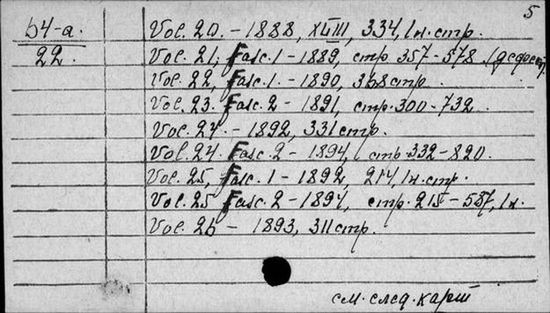 5
64-a.
22.
Vol. 20. - 1888, XLIII, 334, 1 н. стр.
Vol. 21, Fasc. 1 - 1889, стр. 357-578 (дефект)
Vol. 22, Fasc. 1. - 1890, 368 стр
Vol. 23. Fasc. 2 - 1891, стр. 300-732.
Vol. 24. - 1892, 331 стр.
Vol. 24. Fasc. 2 - 1894, стр 332-820.
Vol. 25, Fasc. 1 - 1892, 214, 1 н. стр.
Vol. 25 Fasc. 2 - 1894, стр. 215-587, 1 н.
Vol. 26 - 1893, 311 стр.
см. след. карт